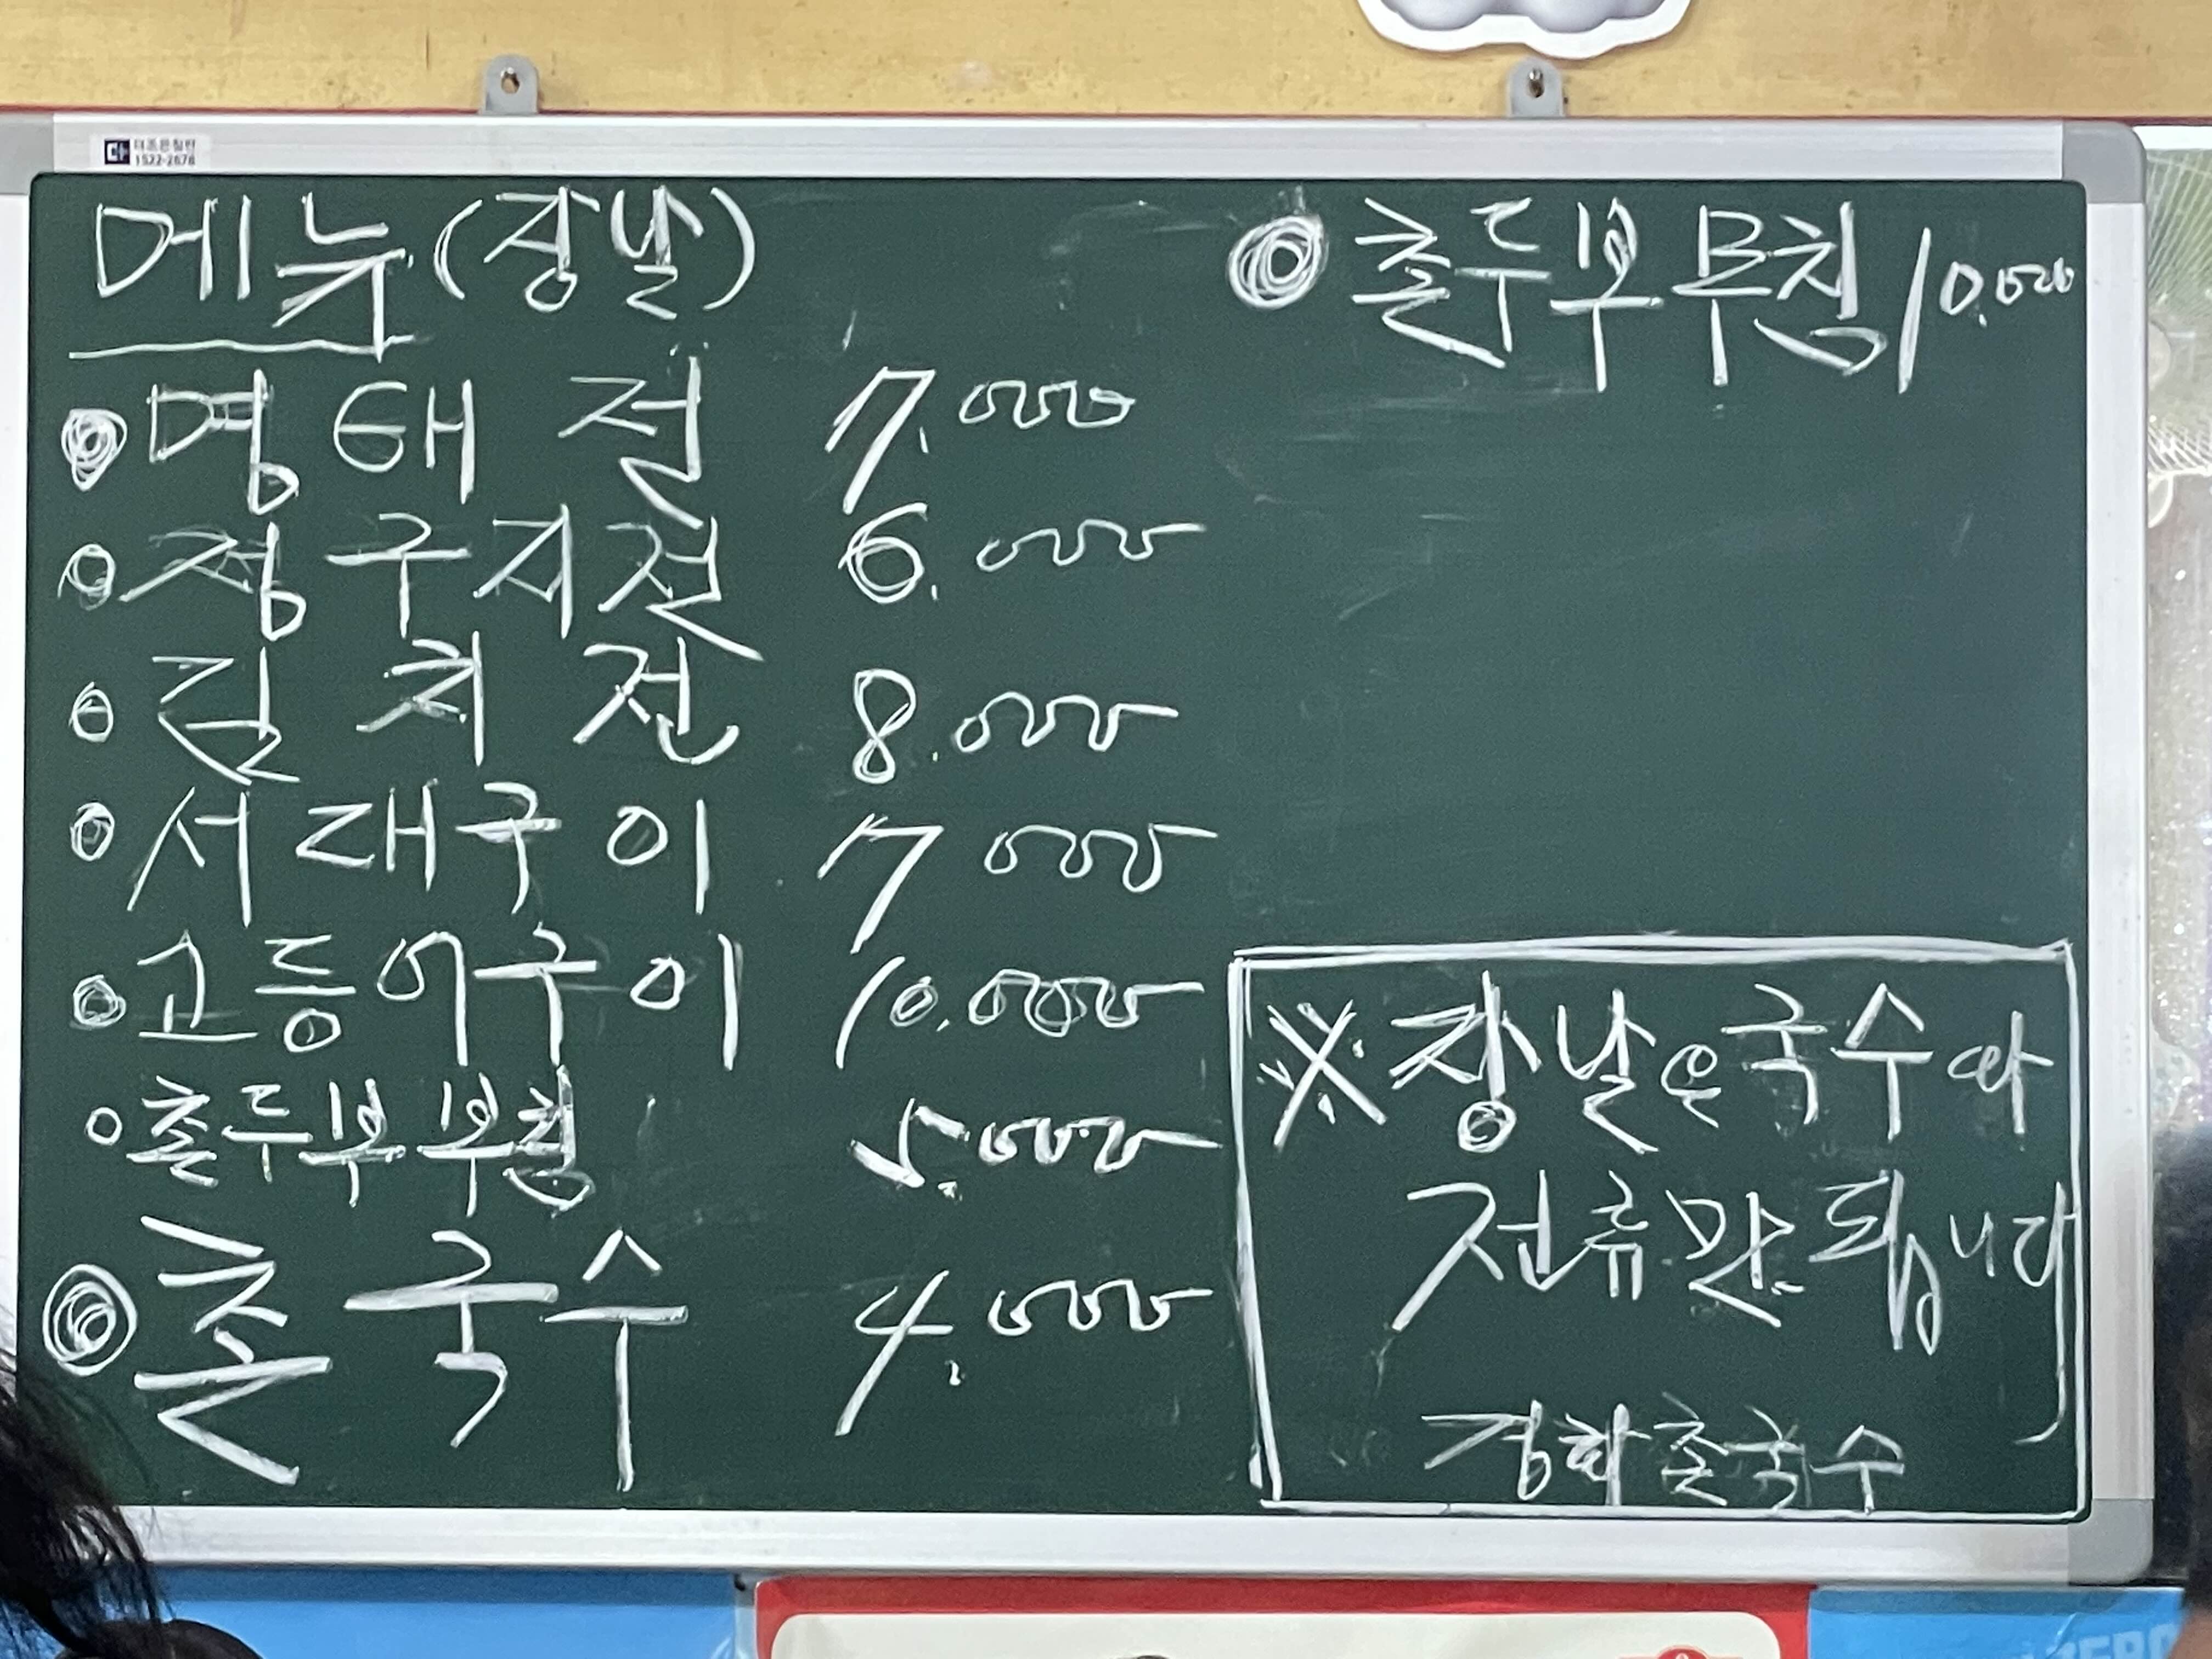 더조은칠판
1522-2678
메뉴(장날)
◎ 명태전 7.000
○ 정구지전 6.000
○ 김치전 8.000
○ 서대구이 7 000
○ 고등어구이 10.000
○ 촌두부부침 5.000
◎ 촌국수 4.000
◎ 촌두부무침 10.000
※ 장날은 국수와
전류만 됩니다
경화촌국수
ZERO